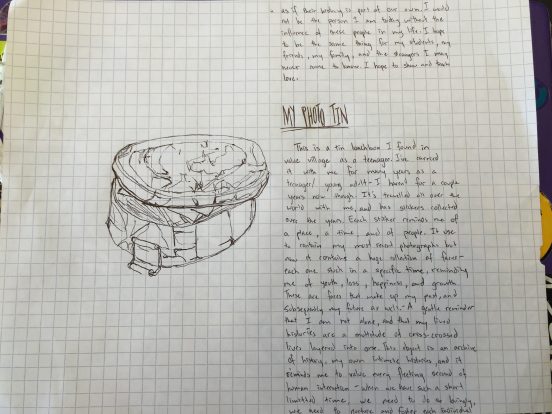 as if their being is part of our own. I would
not be the person I am today without the
influence of these people in my life. I hope
to be the same thing for my students, my
friends, my family, and the strangers I may
never come to know. I hope to show and teach
love.
MY PHOTO TIN
This is a tin lunchbox I found in
value village as a teenager. I've carried
it with me for many years as a
teenager/ young adult - I haven't for a couple
years now though. It's travelled all over the
world with me, and has stickers collected
over the years. Each sticker reminds me of
a place, a time, and of people. It use
to contain my most recent photographs but
now it contains a huge collation of faces -
each one stuck in a specific time, reminding
me of youth, loss, happiness, and growth.
These are faces that make up my past, and
subsequently my future as well. - A gentle reminder
that I am not alone, and that my lived
histories are a multitude of criss-crossed
lives layered into one. This object is an archive
of history, my own intimate histories, and it
reminds me to value every fleeting second of
human interaction - when we have such a short
limitted time, we need to do so lovingly,
we need to nurture and foster each individual